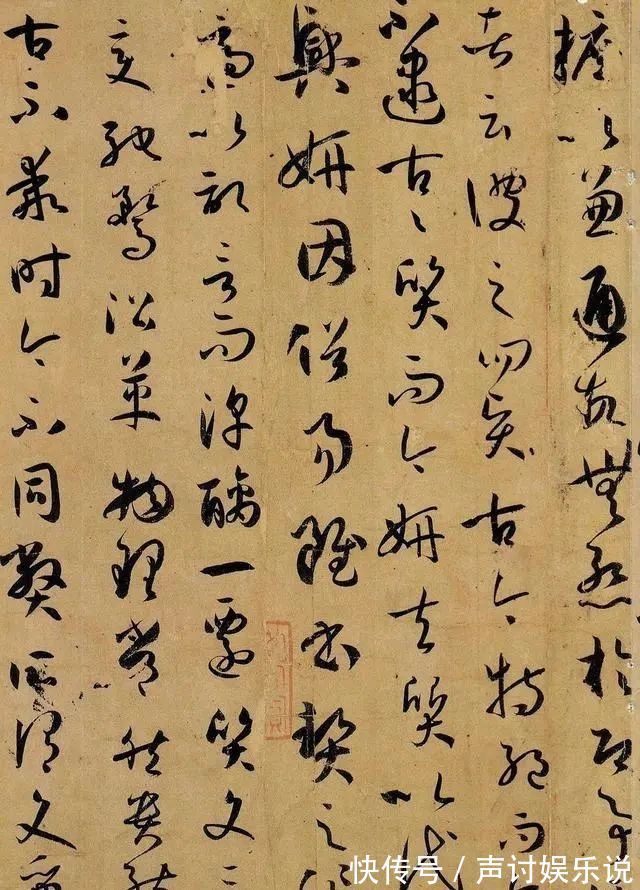 摭以兼通故無慙於即事
者云彼之四賢古今特絕而
不逮古〻質而今妍夫質以代
興妍因俗易雖書契之作
適以記言而淳醨一遷質文三
變馳騖沿革物理常然貴能
古不乖時今不同弊所謂文質
快传号 / 声讨娱乐说